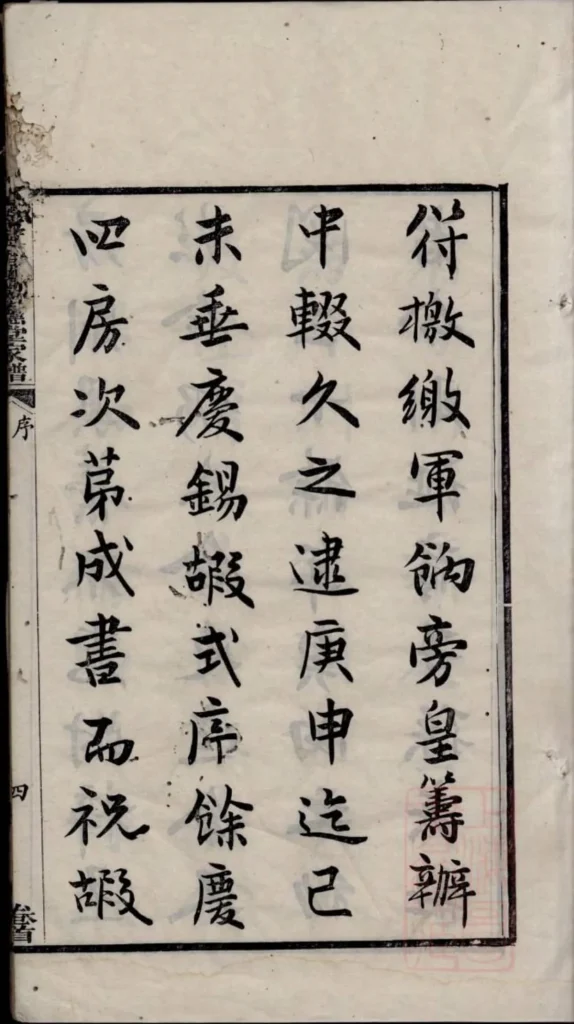 符檄繳軍餉旁皇籌辦
中輟久之逮庚申迄己
未垂慶錫嘏式序餘慶
四房次苐成書而祝嘏
堂家譜
序
四
卷首